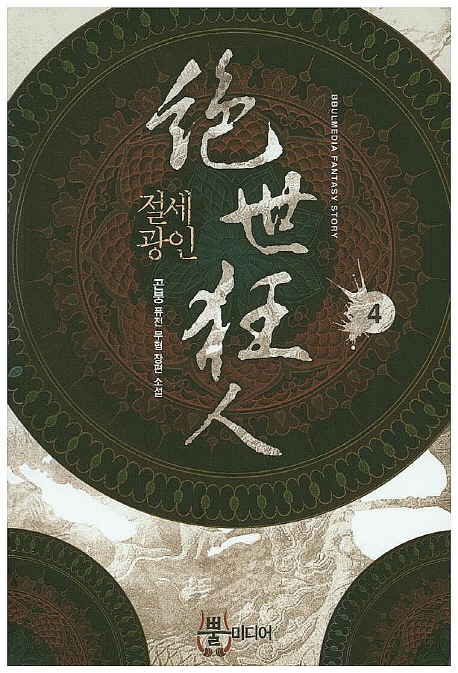 絶世狂人
절세
광인
곤붕 퓨전 무협 장편 소설
BBULMEDIA FANTASY STORY
4
뿔미디어